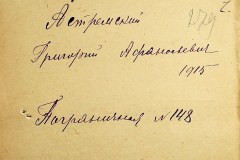 Ястремский
Григорий Афанасьевич
1915
Пограничная № 148